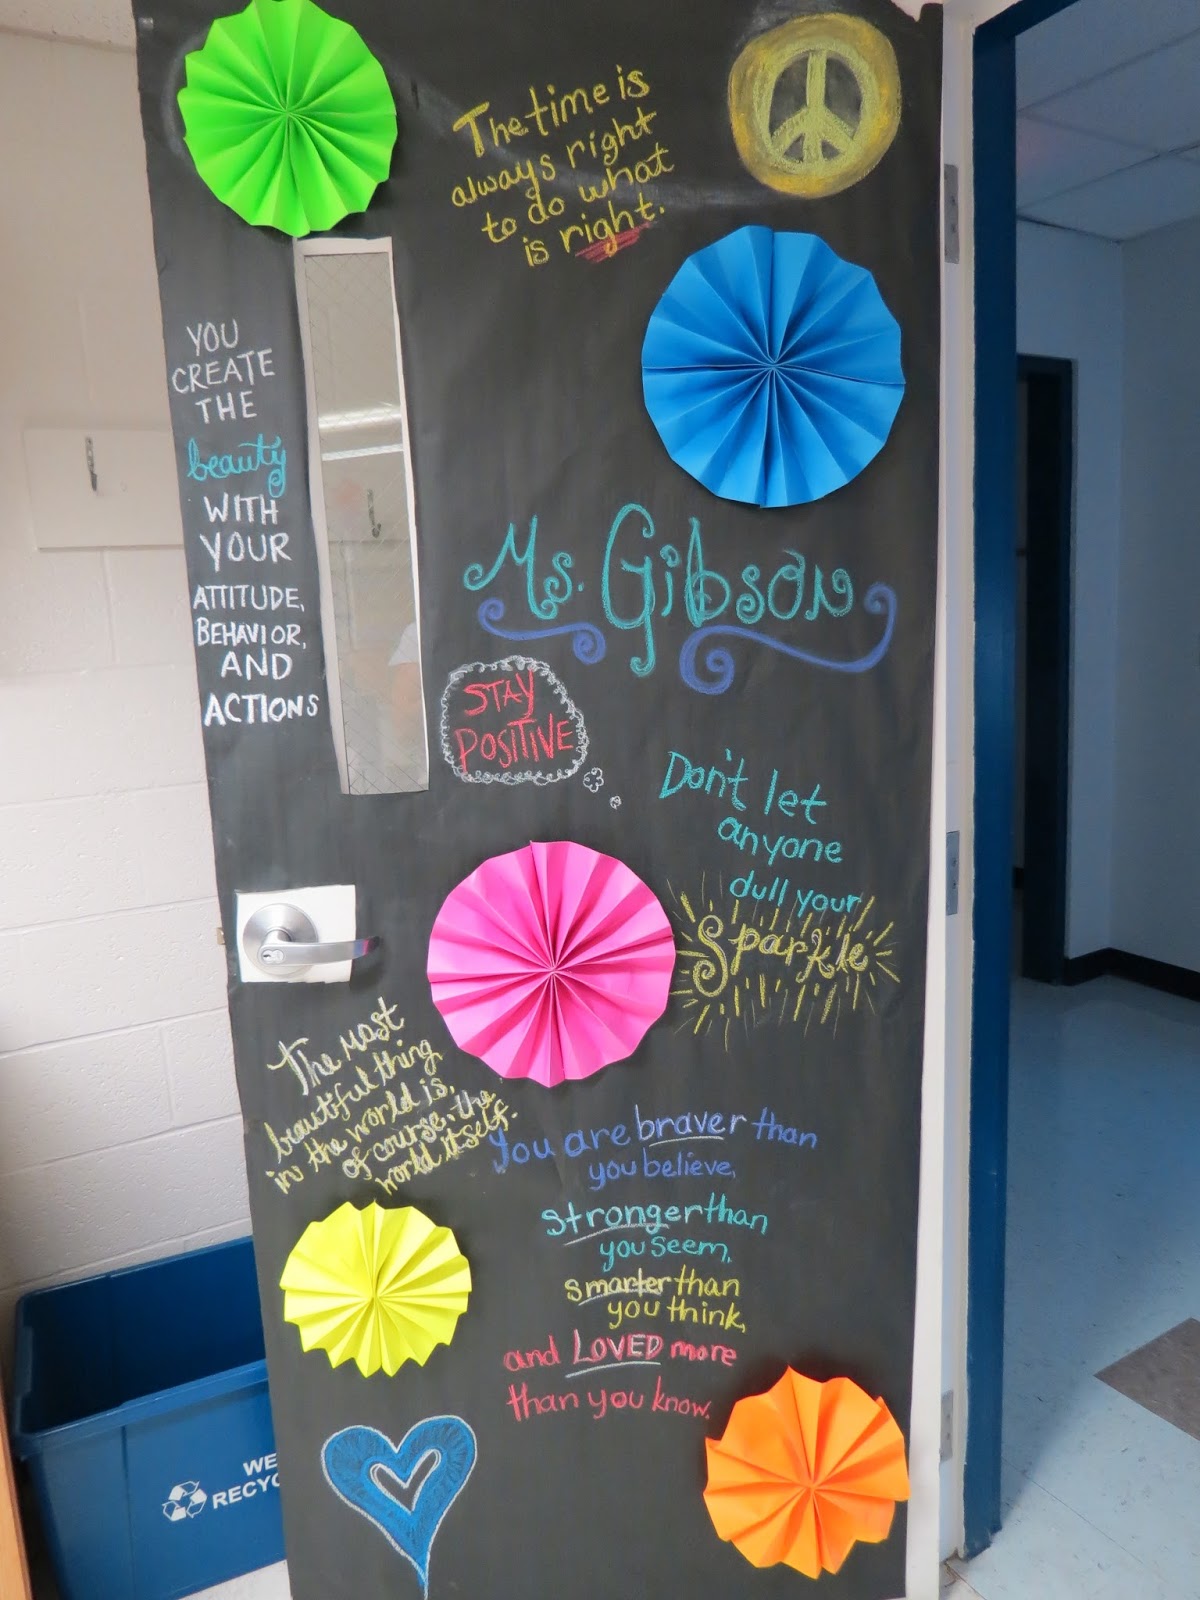 The time is
always right
to do what
is right.
YOU
CREATE
THE
beauty
WITH
YOUR
ATTITUDE,
BEHAVIOR,
AND
ACTIONS
Ms. Gibson
STAY
POSITIVE
Don't let
anyone
dull your
Sparkle
The most
beautiful thing
in the world is,
of course, the
world itself.
You are braver than
you believe,
stronger than
you seem,
smarter than
you think,
and LOVED more
than you know.
WE
RECYC